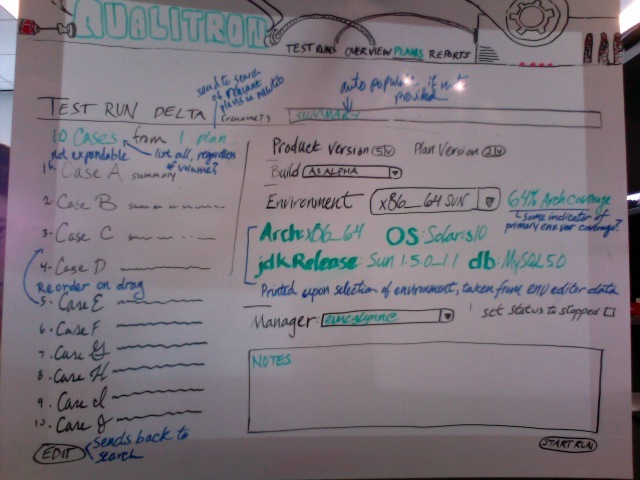 QUALITRON
TEST RUNS OVERVIEW PLANS REPORTS
send to search
of relevant
plans in new tab
(rename?)
auto populate if not
provided
TEST RUN DELTA
SUMMARY
10 Cases from 1 plan
not expandable
list all, regardless
of volume?
1. Case A summary
2. Case B
3. Case C
4. Case D
Reorder on drag
5. Case E
6. Case F
7. Case G
8. Case H
9. Case I
10. Case J
EDIT
sends back to
search
Product Version 5 v Plan Version 2 v
Build AS ALPHA
Environment x86_64 SUN
64% Arch coverage
some indicator of
primary env var coverage?
Arch: x86_64 OS: Solaris10
jdkRelease: Sun 1.5.0_1.1 db: MySQL 5.0
Printed upon selection of environment, taken from env editor data
Manager:
set status to stopped
NOTES
START RUN